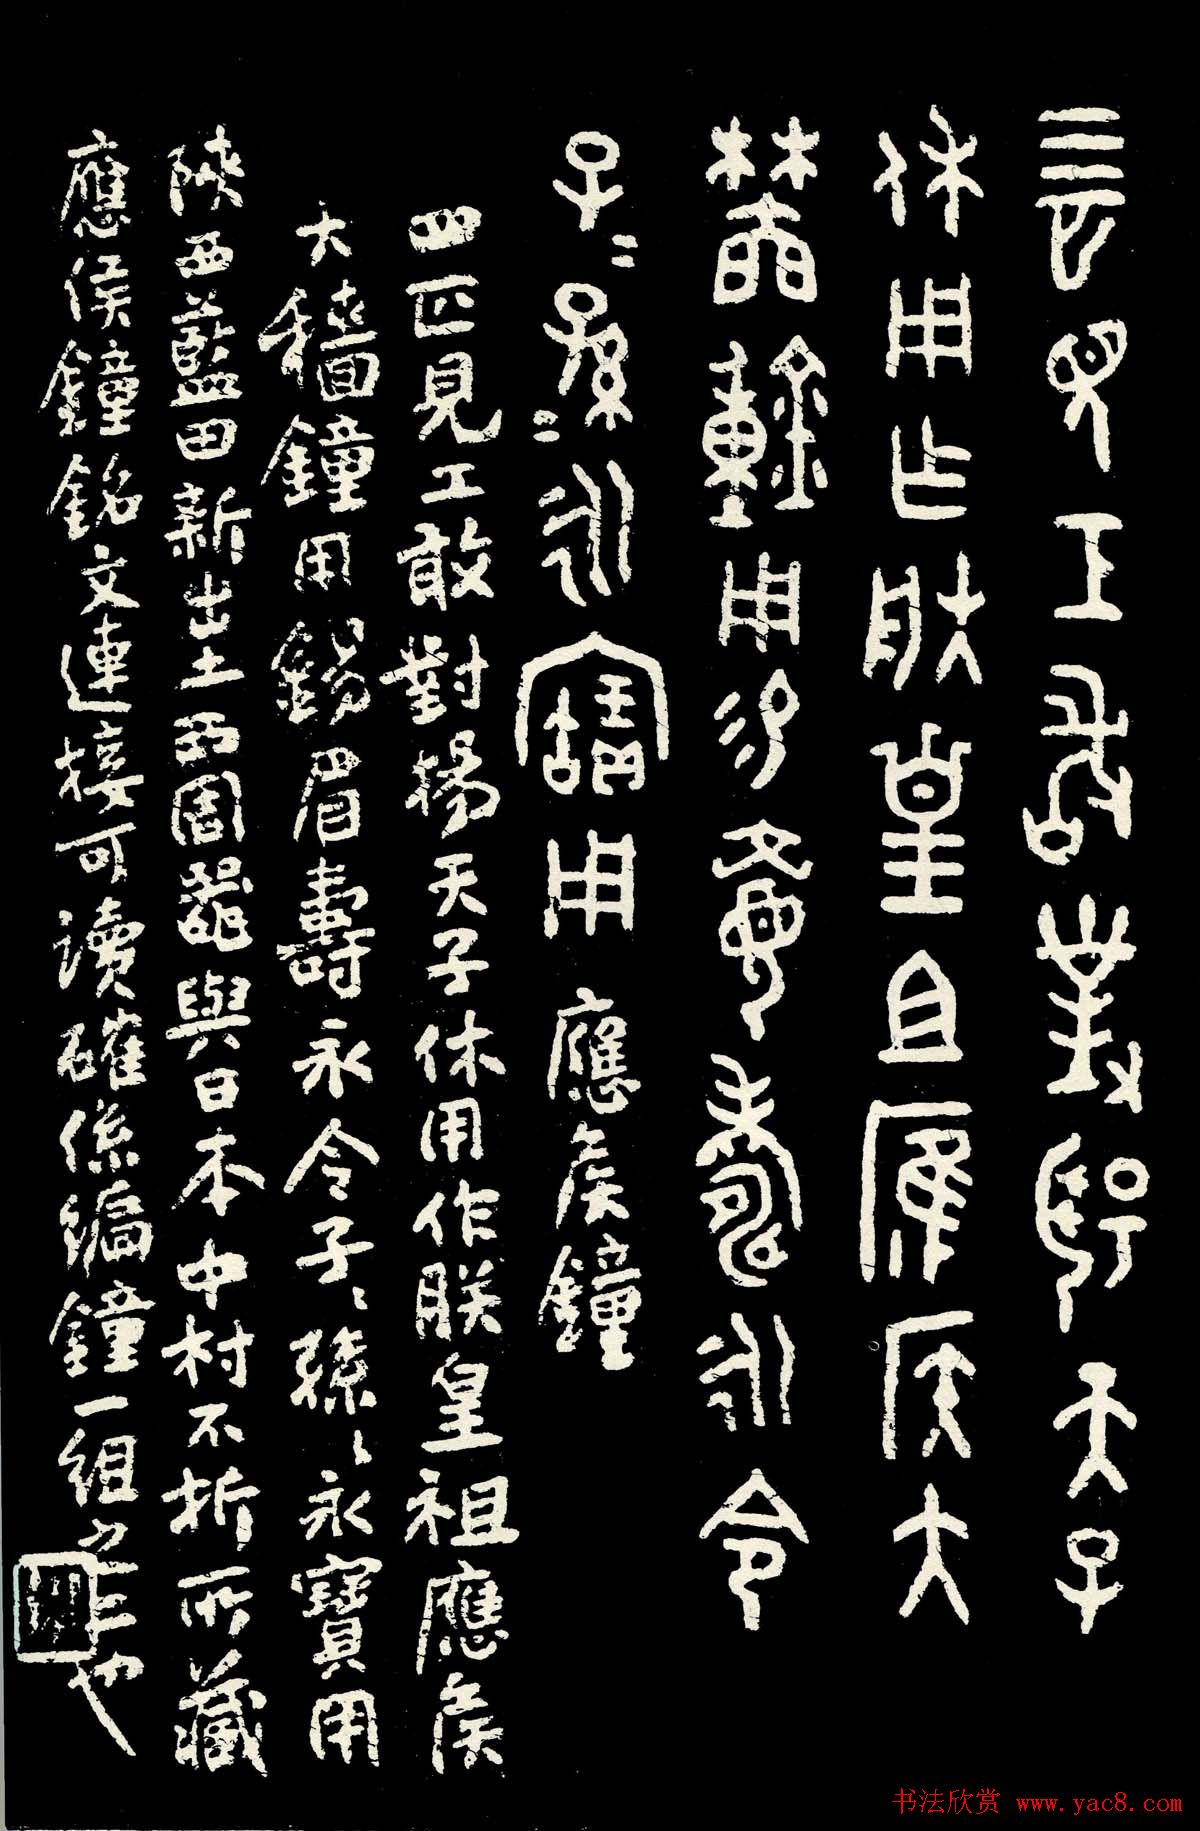 三匹見工敢對揚天子
休用作朕皇且應侯大
龢鐘用易眉壽永令
子=孫=永寶用 應侯鐘
四匹見工敢對揚天子休用作朕皇祖應侯
大穡鐘用錫眉壽永令子〻孫〻永寶用
陝西藍田新出土西周器與日本中村不折所藏
應侯鐘銘文連接可读確係編鐘一組之二也
书法欣赏 www.yac8.com